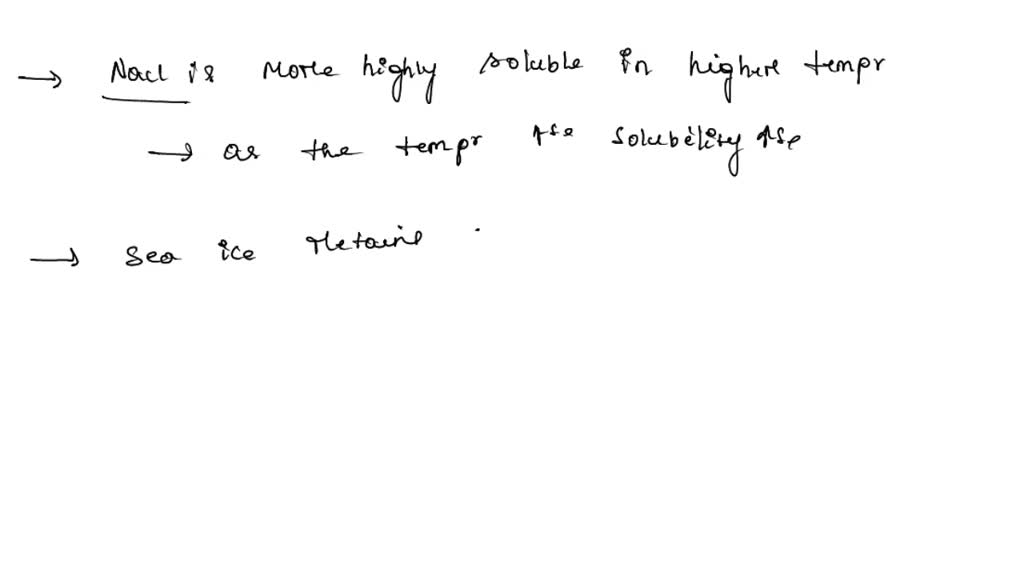 → Nacl is more highly soluble in higher tempr
→ as the tempr ↑se solubility ↑se
→ sea ice retains